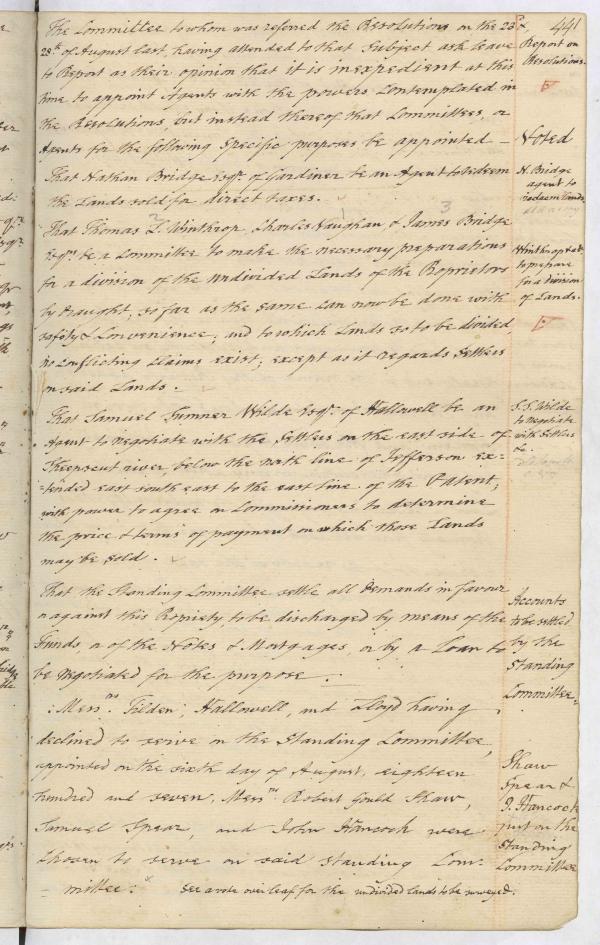 441
The Committee to whom was referred the Resolutions on the 23d &
28th of August last, having attended to that Subject ask leave
to Report as their opinion that it is inexpedient at this
time to appoint Agents with the powers Contemplated in
the Resolutions, but instead thereof that Committees, or
Agents for the following Specific purposes be appointed —
That Nathan Bridge Esqr. of Gardiner be an Agent to redeem
the Lands sold for direct taxes.
2 1 3
That Thomas L. Winthrop, Charles Vaughan & James Bridge
Esqrs be a Committee to make the necessary preparations
for a division of the undivided Lands of the Proprietors
by draught; so far as the same can now be done with
safety & Convenience; and to which Lands so to be divided
no Conflicting Claims exist; except as it regards Settlers
on said Lands.
That Samuel Sumner Wilde Esqr. of Hallowell be an
Agent to negotiate with the Settlers on the east side of
Sheepscut river, below the north line of Jefferson ex-
=tended east south east to the east line of the Patent;
with power to agree on Commissioners to determine
the price & terms of payment on which those Lands
may be sold.
That the Standing Committee settle all Demands in favour
or against this Propriety, to be discharged by means of the
Funds, or of the Notes & Mortgages, or by a Loan to
be negotiated for the purpose.
Messrs. Tilden, Hallowell, and Lloyd having
declined to serve on the Standing Committee,
appointed on the sixth day of August, eighteen
hundred and seven, Messrs. Robert Gould Shaw,
Samuel Spear, and John Hancock were
Chosen to serve on said Standing Com-
-mittee: x See a vote over leaf for the undivided lands to be surveyed.
Report on
Resolutions.
Voted
N. Bridge
agent to
redeem Lands
Winthrop &c
to prepare
for a division
of Lands.
S. S. Wilde
to negotiate
with Settlers
&c.
Accounts
to be settled
by the
Standing
Committee
Shaw
Spear &
J. Hancock
put on the
Standing
Committee